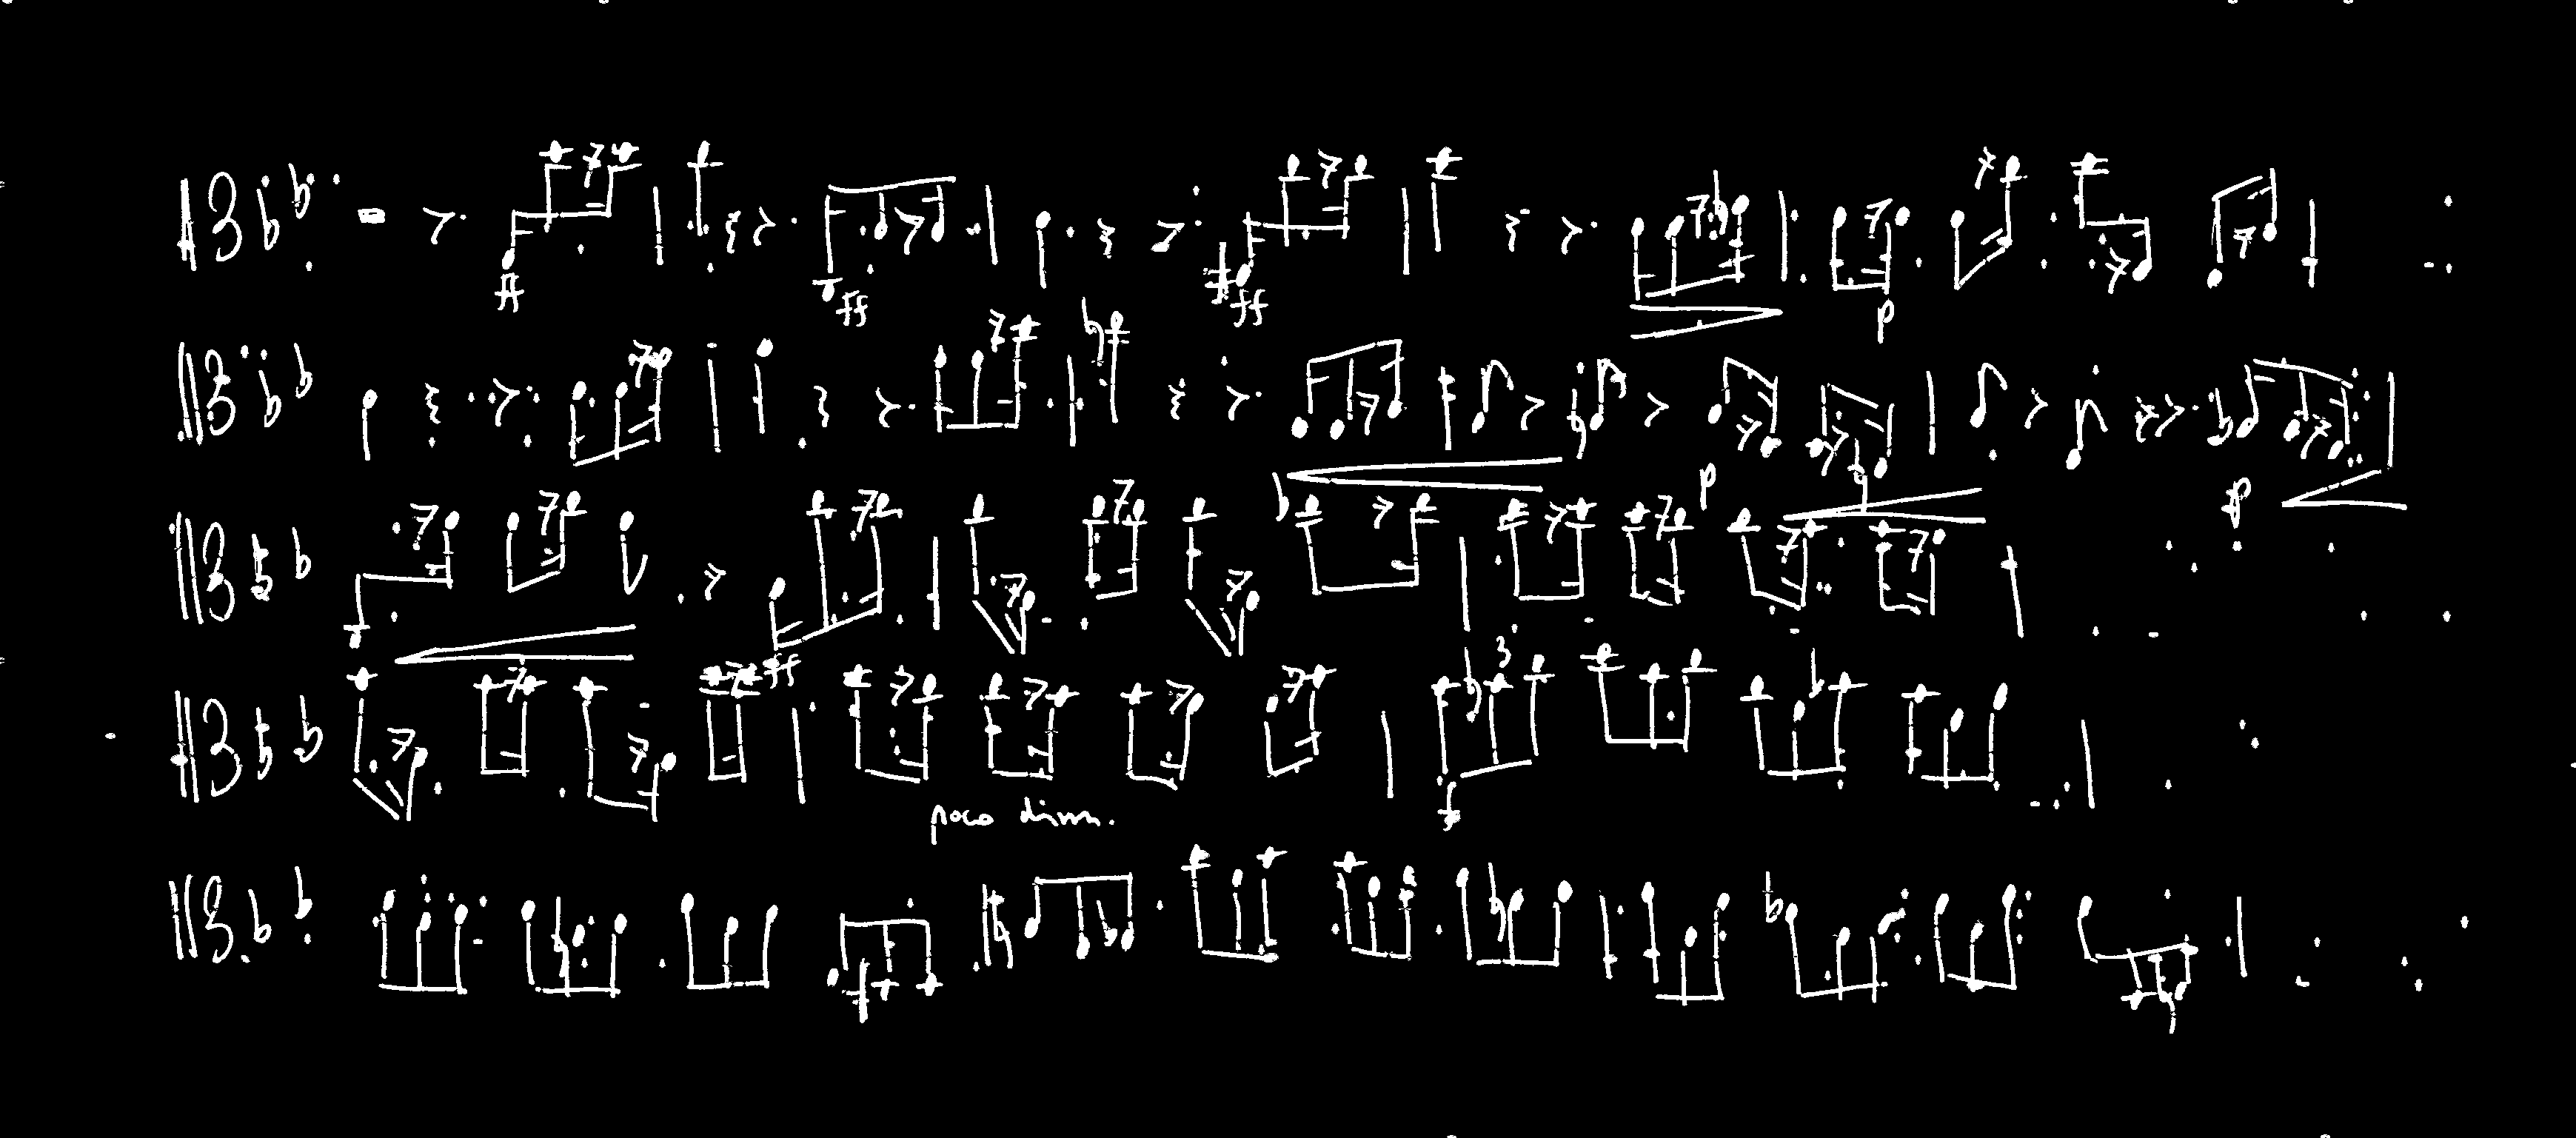 ff ff ff p
p p
ff
poco dim.
3
f